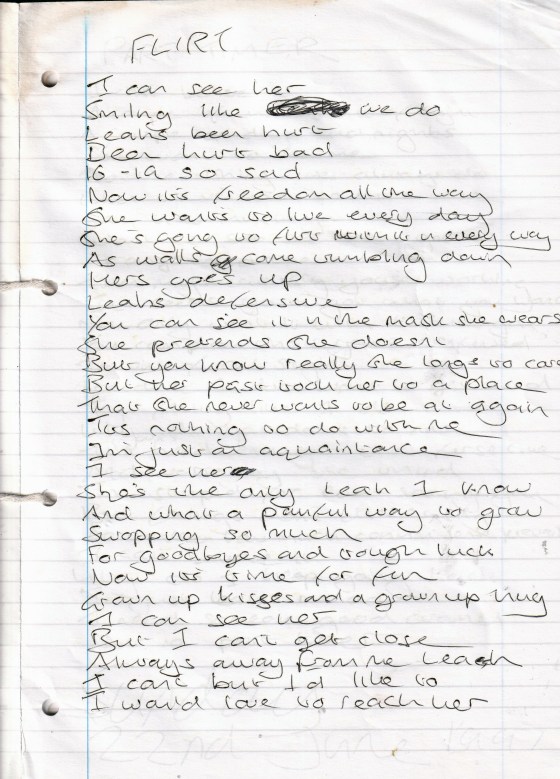 FLIRT
I can see her
Smiling like we do
Leahs been hurt
Been hurt bad
16-19 so sad
Now its freedom all the way
She wants to live every day
She's going to flirt with it in every way
As walls come tumbling down
Hers goes up
Leahs defensive
You can see it in the mask she wears
She pretends she doesnt
But you know really she longs to care
But her past took her to a place
That she never wants to be at again
Its nothing to do with me
Im just an aquaintance
I see her
She's the only Leah I know
And what a painful way to grow
Swopping so much
For goodbyes and tough luck
Now its time for fun
Grown up kisses and a grown up hug
I can see her
But I cant get close
Always away from me Leah
I cant but I'd like to
I would love to reach her